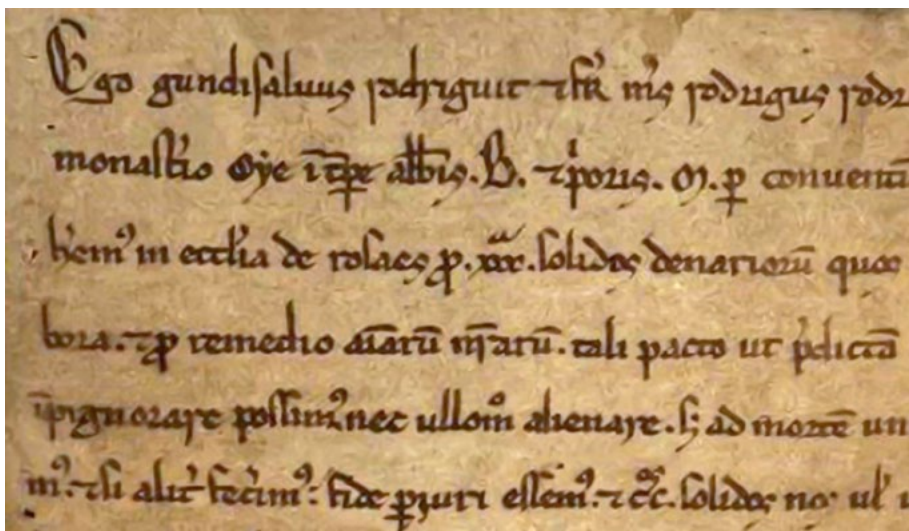 Ego gundisaluus rodriguit ⁊ fr̄ mͥs rodrigus rodr
monast̄io Oye ī tp̄e abb̄is. B. ⁊ pͥoris. M. ꝑ conuentū
h̄emꝰ in eccl̄ia de rosaes ꝓ .xxx. solidos denariorū quos
bora. ⁊ ꝓ remedio aīarū nr̄arū. tali pacto ut p̄dictā
īpignorare possimꝰ nec ullomͦ alienare. sꝫ ad mortē un
mꝰ. ⁊ si alit̄ fec̄imꝰ: fide ꝑiuri essemꝰ. ⁊ cc̄c. solidos nos ul̄